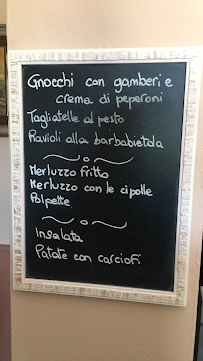 Gnocchi con gamberi e
crema di peperoni
Tagliatelle al pesto
Ravioli alla barbabietola
Merluzzo fritto
Merluzzo con le cipolle
Polpette
Insalata
Patate con carciofi